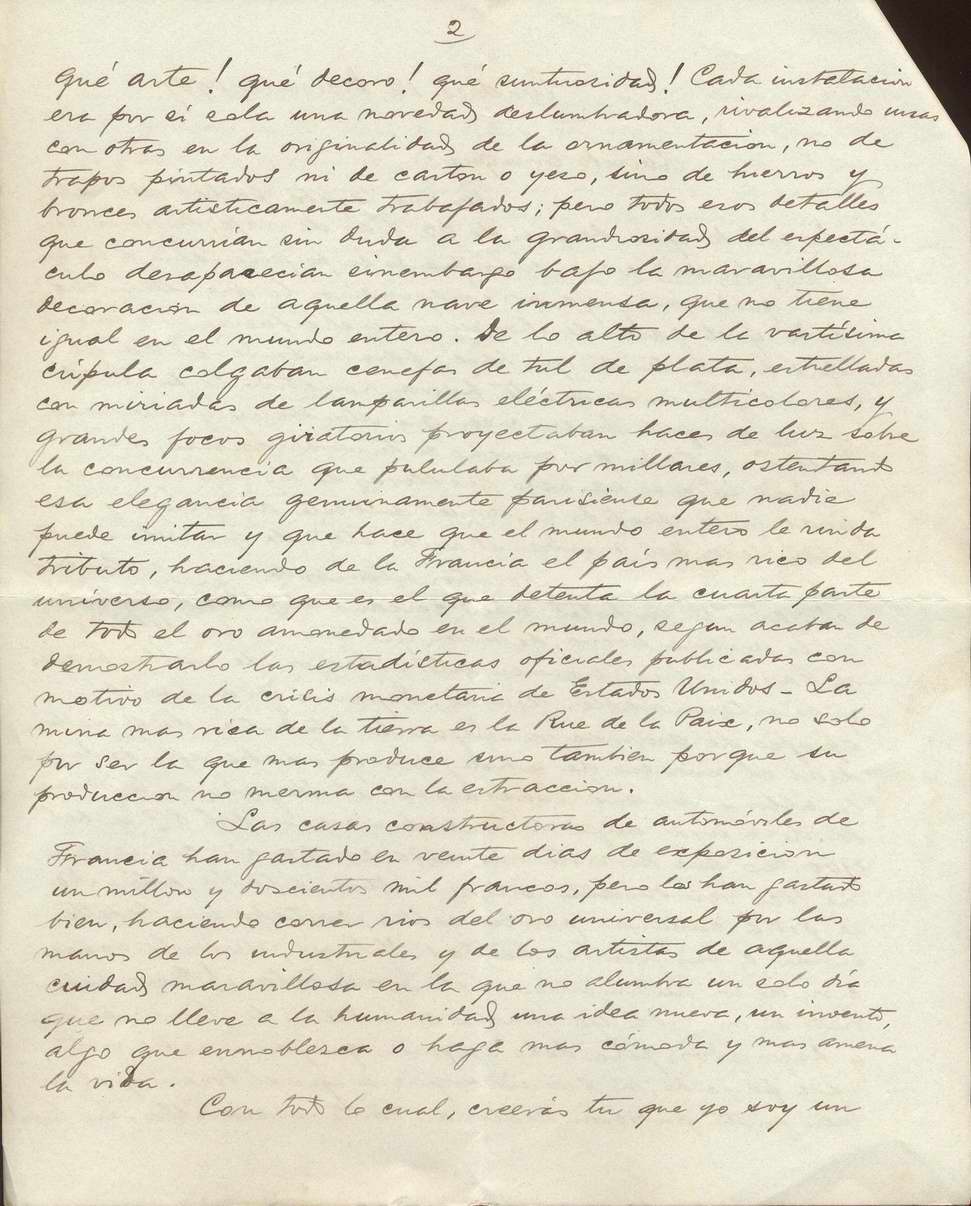 2
Qué arte! qué decoro! qué suntuosidad! Cada instalacion
era por sí sola una novedad deslumbradora, rivalizando unas
con otras en la originalidad de la ornamentacion, no de
trapos pintados ni de carton o yeso, sino de hierros y
bronces artisticamente trabajados; pero todos esos detalles
que concurrian sin duda a la grandiosidad del espectá-
culo desaparecian sinembargo bajo la maravillosa
decoracion de aquella nave inmensa, que no tiene
igual en el mundo entero. De lo alto de la vastísima
cúpula colgaban cenefas de tul de plata, estrelladas
con miriadas de lamparillas eléctricas multicolores, y
grandes focos giratorios proyectaban haces de luz sobre
la concurrencia que pululaba por millares, ostentando
esa elegancia genuinamente parisiense que nadie
puede imitar y que hace que el mundo entero le rinda
tributo, haciendo de la Francia el país mas rico del
universo, como que es el que detenta la cuarta parte
de todo el oro amonedado en el mundo, segun acaban de
demostrarlo las estadísticas oficiales publicadas con
motivo de la crisis monetaria de Estados Unidos - La
mina mas rica de la tierra es la Rue de la Paix, no solo
por ser la que mas produce sino tambien porque su
produccion no merma con la estraccion.
Las casas constructoras de automóviles de
Francia han gastado en veinte dias de exposicion
un millon y doscientos mil francos, pero los han gastado
bien, haciendo correr rios del oro universal por las
manos de los industriales y de los artistas de aquella
ciudad maravillosa en la que no alumbra un solo día
que no lleve a la humanidad una idea nueva, un invento,
algo que ennoblezca o haga mas cómoda y mas amena
la vida.
Con todo lo cual, creerás tu que yo soy un